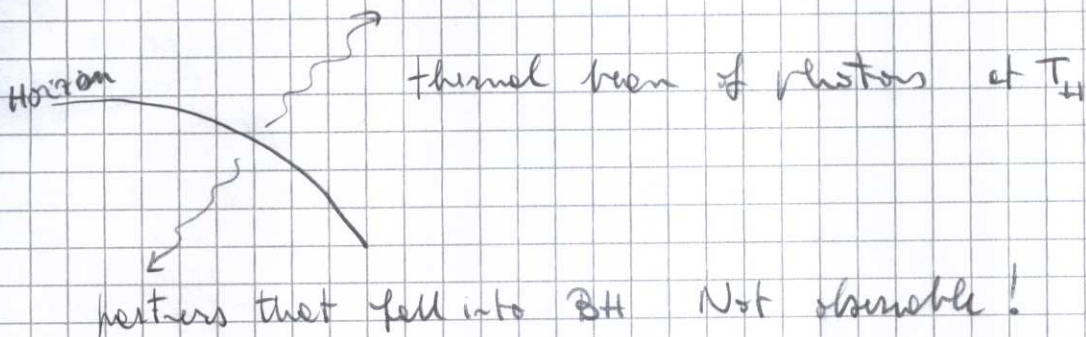 Horizon
thermal beam of photons at T_H
partners that fell into BH Not observable!